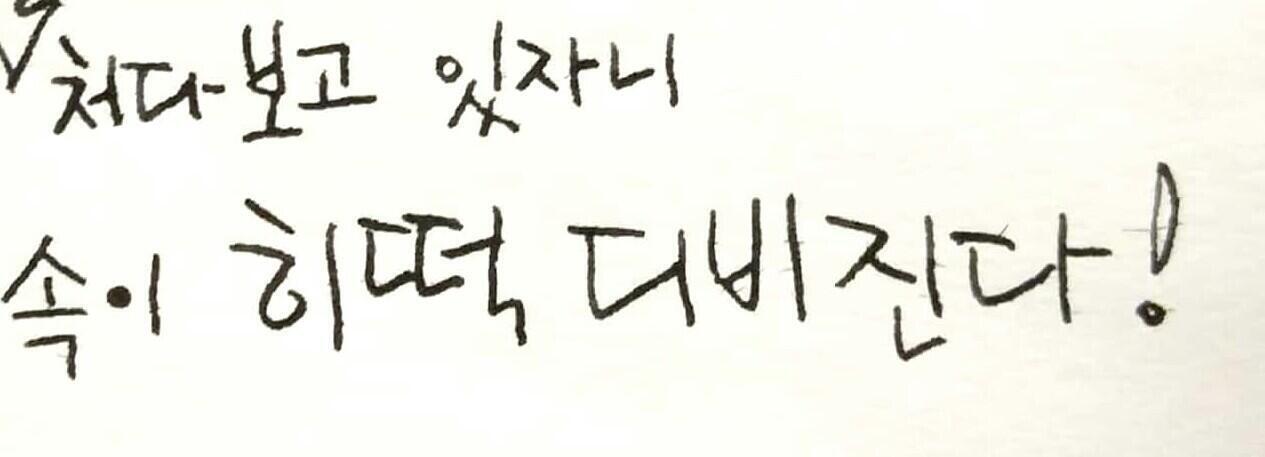 쳐다보고 있자니
속이 히떡 디비진다!